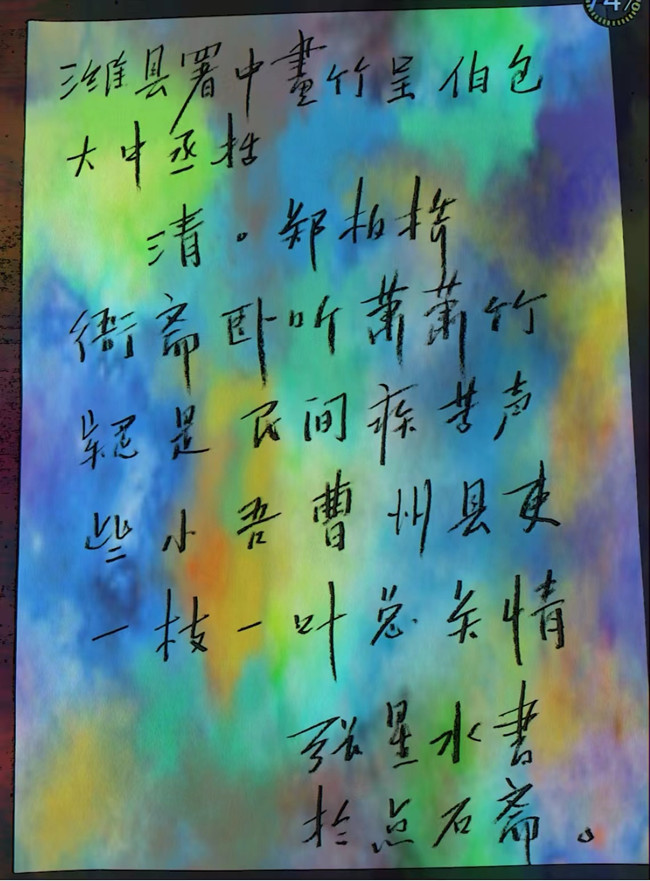 潍县署中畫竹呈伯包
大中丞括
清。郑柏桥
衙斋卧听萧萧竹
疑是民间疾苦声
些小吾曹州县吏
一枝一叶总关情
张星水书
於点石斋。